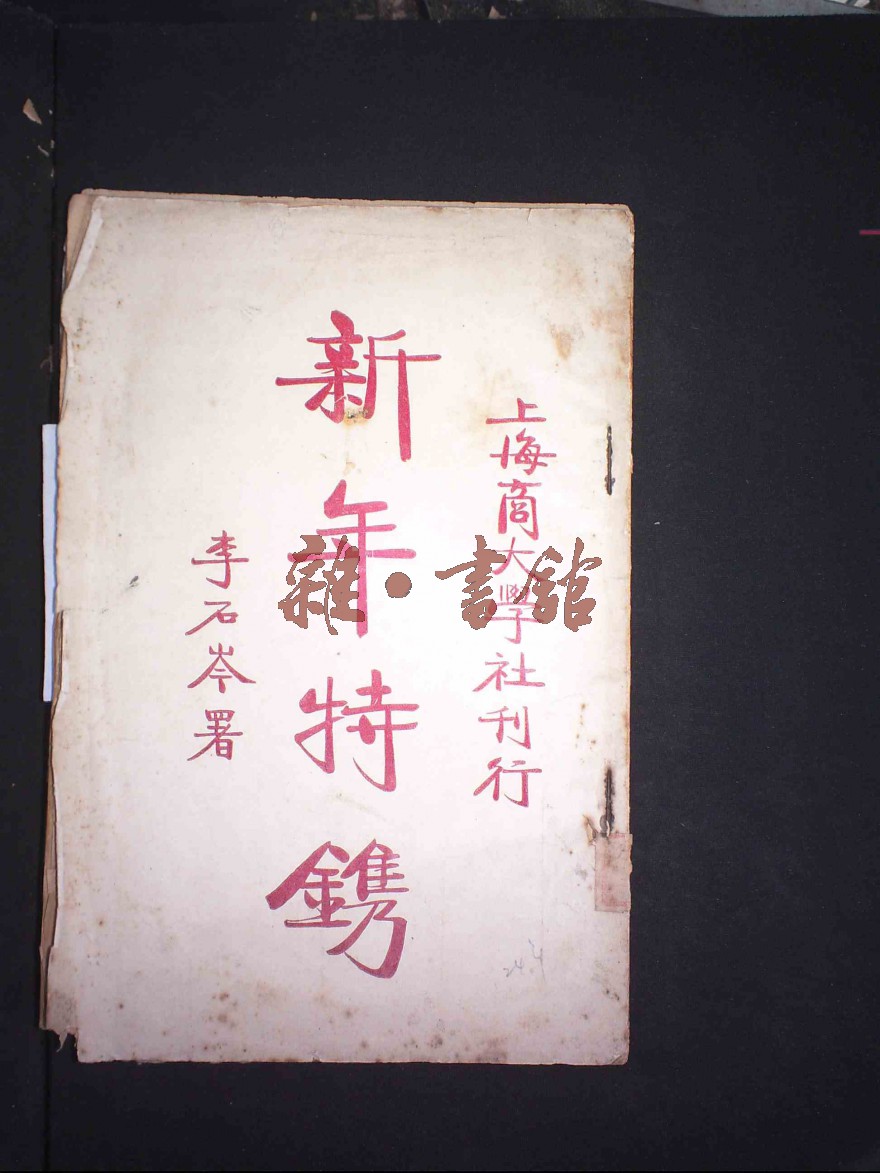 上海商大學社刊行
新年特鎸
李石岑署
雜·書舘